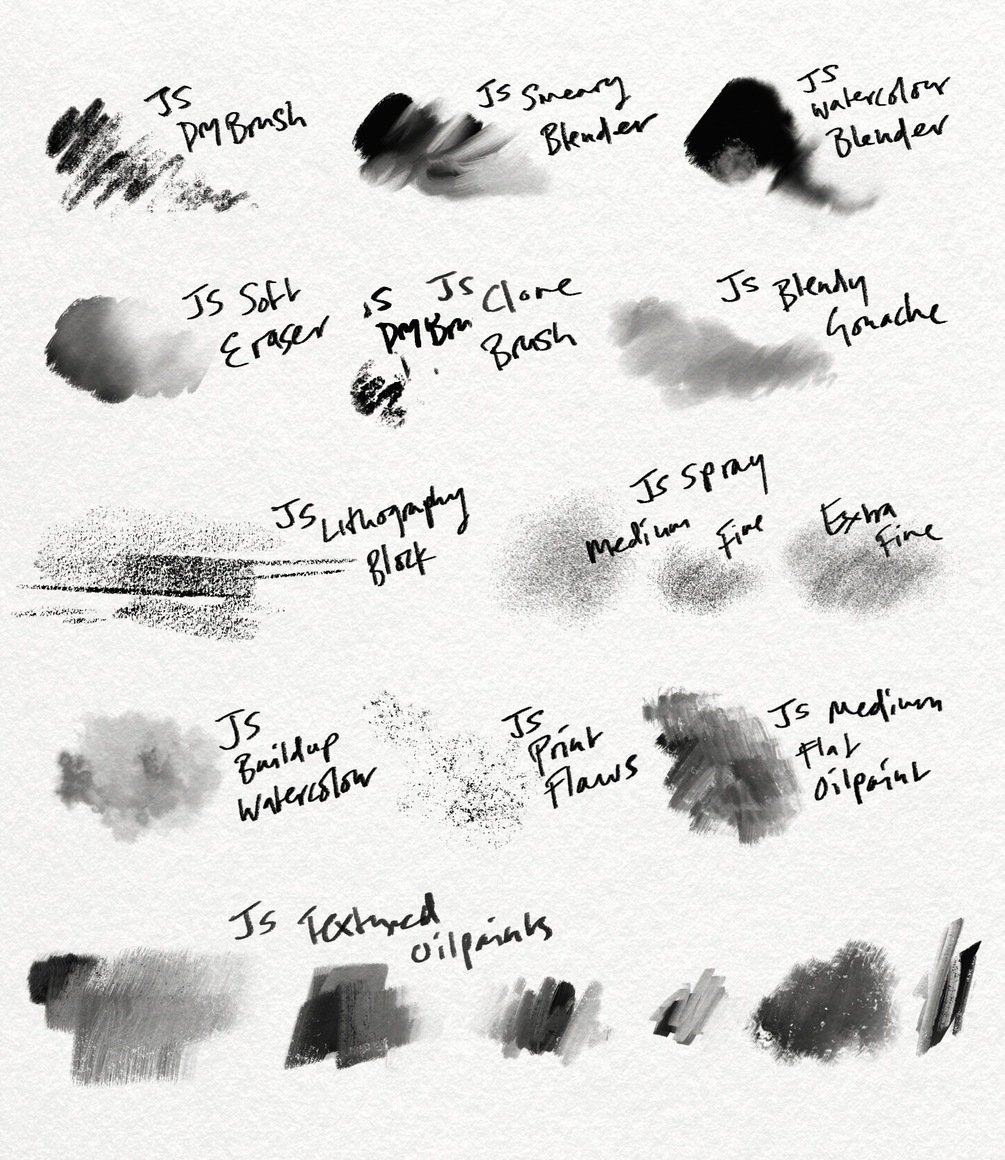 JS
Dry Brush
JS Smeary
Blender
JS
Watercolour
Blender
JS Soft
Eraser
JS
Dry Bru
JS Clone
Brush
JS Blendy
Gouache
JS Lithography
Block
JS Spray
Medium
Fine
Extra
Fine
JS
Buildup
Watercolour
JS
Print
Flaws
JS Medium
Flat
Oilpaint
JS Textured
Oilpaints